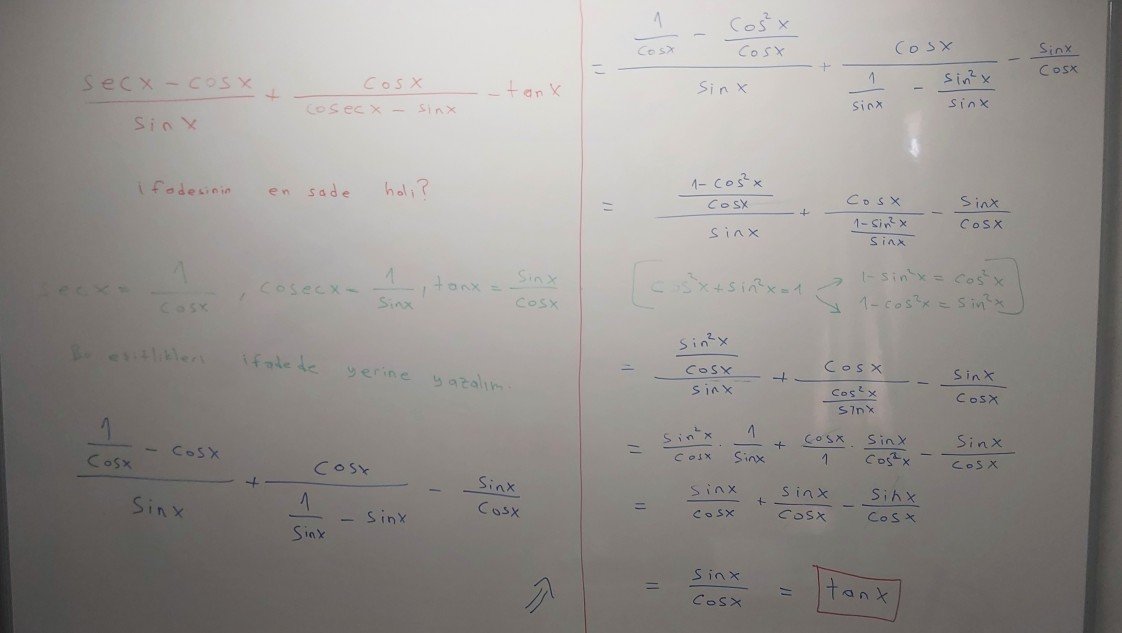 (secx - cosx)/(sinx) + (cosx)/(cosecx - sinx) - tanx
ifadesinin en sade hali?
secx = 1/cosx , cosecx = 1/sinx , tanx = sinx/cosx
Bu eşitlikleri ifadede yerine yazalım.
(1/cosx - cosx)/(sinx) + (cosx)/(1/sinx - sinx) - sinx/cosx
= (1/cosx - cos²x/cosx)/(sinx) + (cosx)/(1/sinx - sin²x/sinx) - sinx/cosx
= ((1-cos²x)/cosx)/(sinx) + (cosx)/((1-sin²x)/sinx) - sinx/cosx
[cos²x+sin²x=1 → 1-sin²x = cos²x
→ 1-cos²x = sin²x]
= (sin²x/cosx)/(sinx) + (cosx)/(cos²x/sinx) - sinx/cosx
= sin²x/cosx · 1/sinx + cosx/1 · sinx/cos²x - sinx/cosx
= sinx/cosx + sinx/cosx - sinx/cosx
= sinx/cosx = tanx